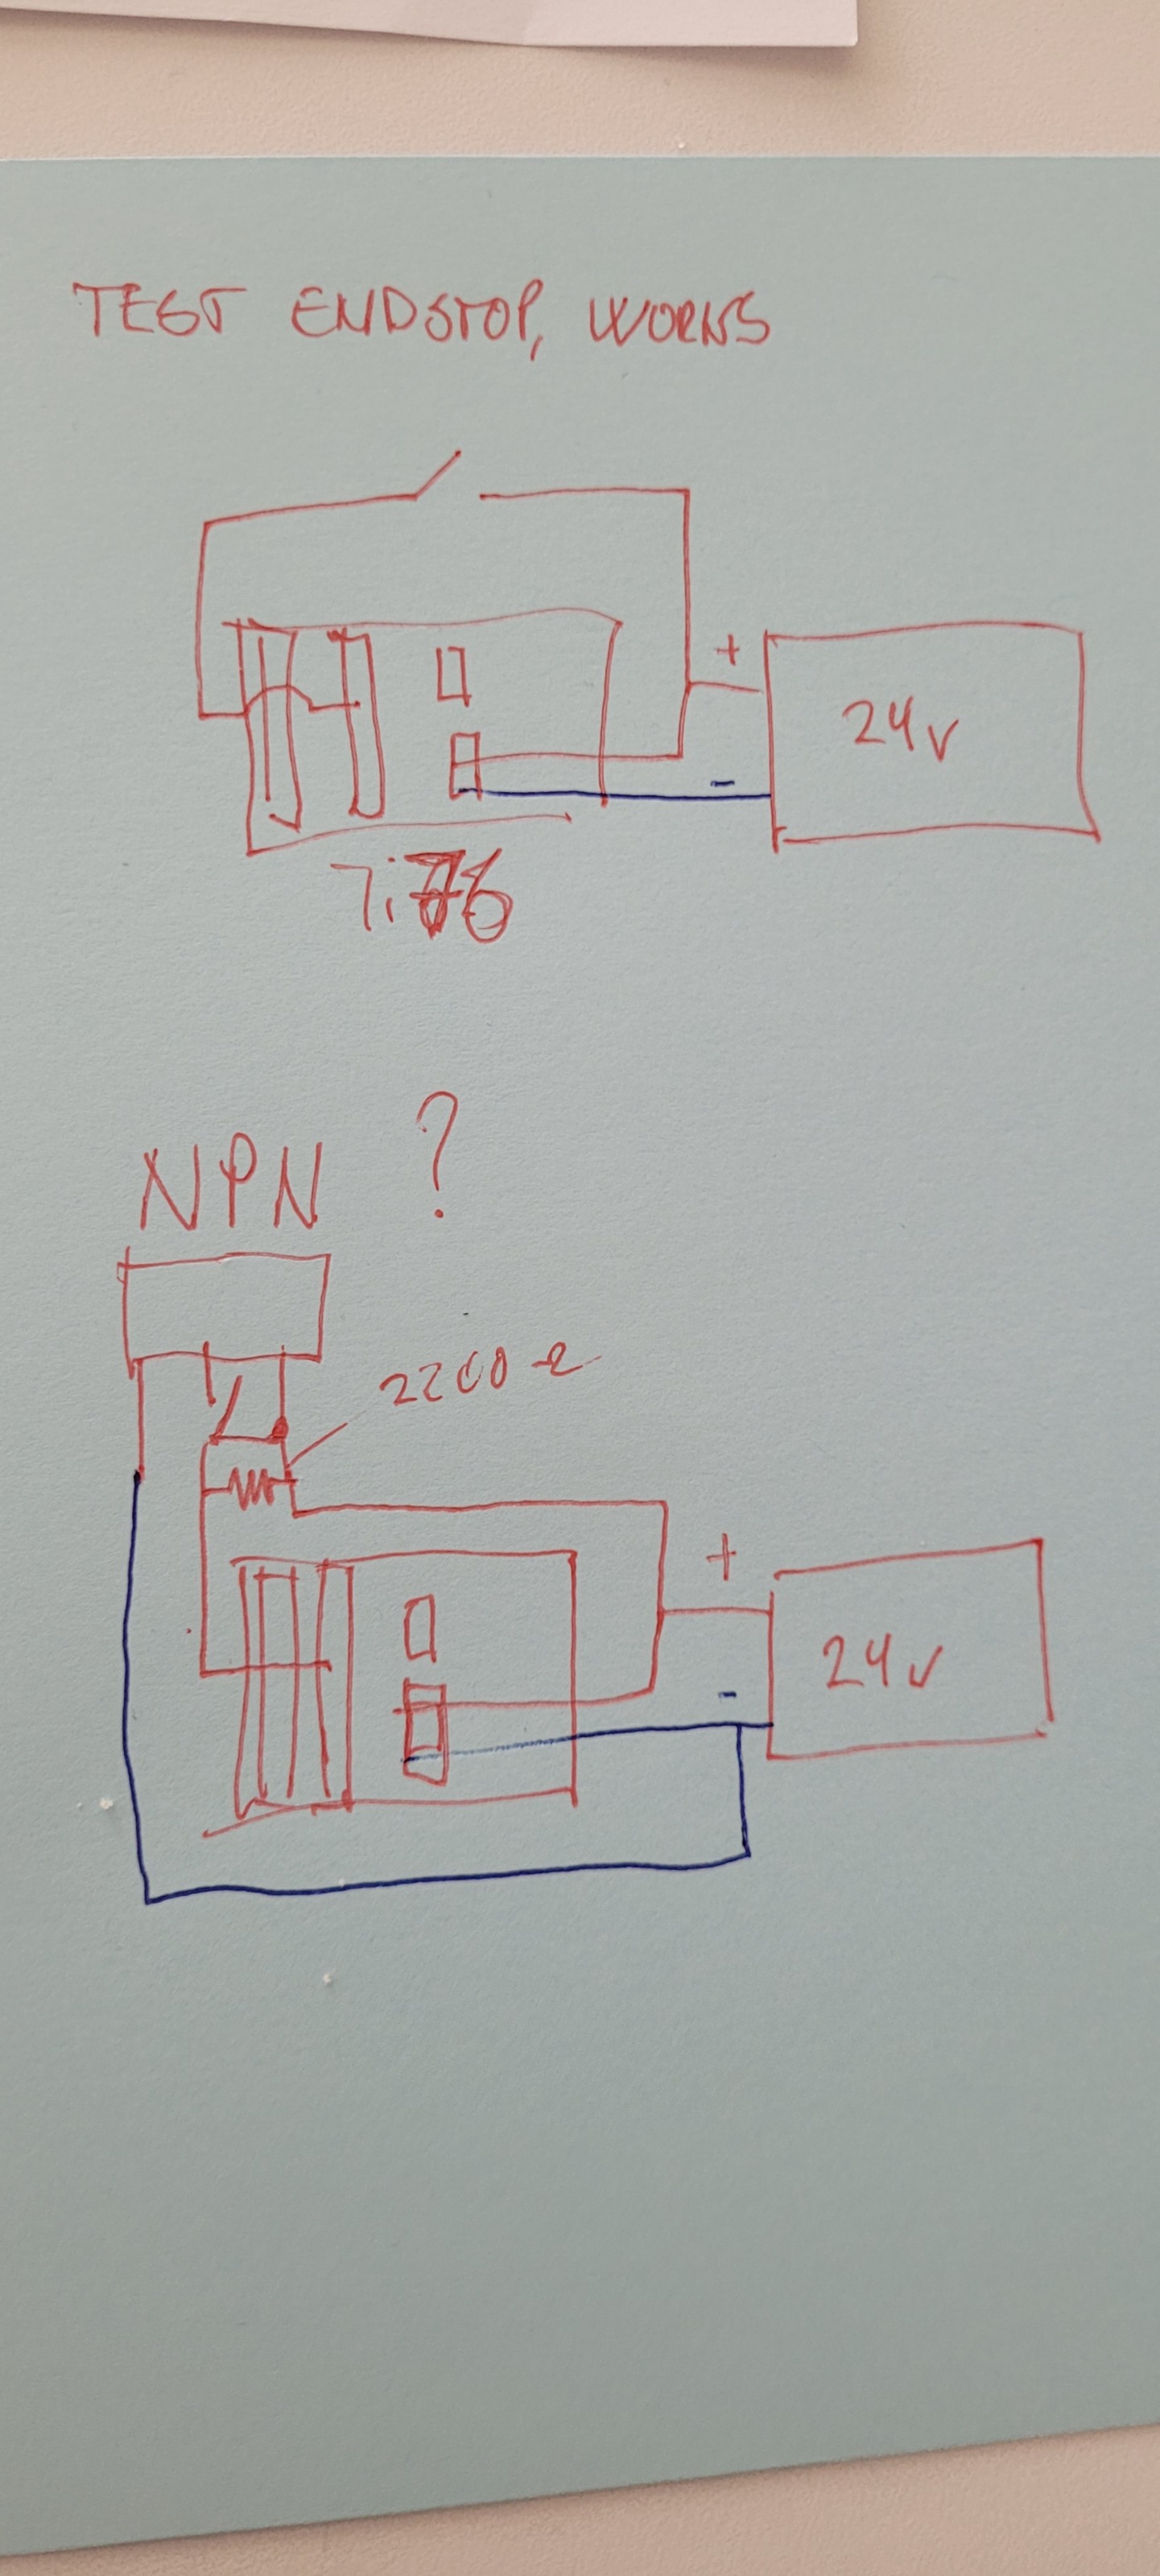 TEST ENDSTOP, WORKS
+
24v
-
7i76
NPN ?
2200 Ω
+
24v
-